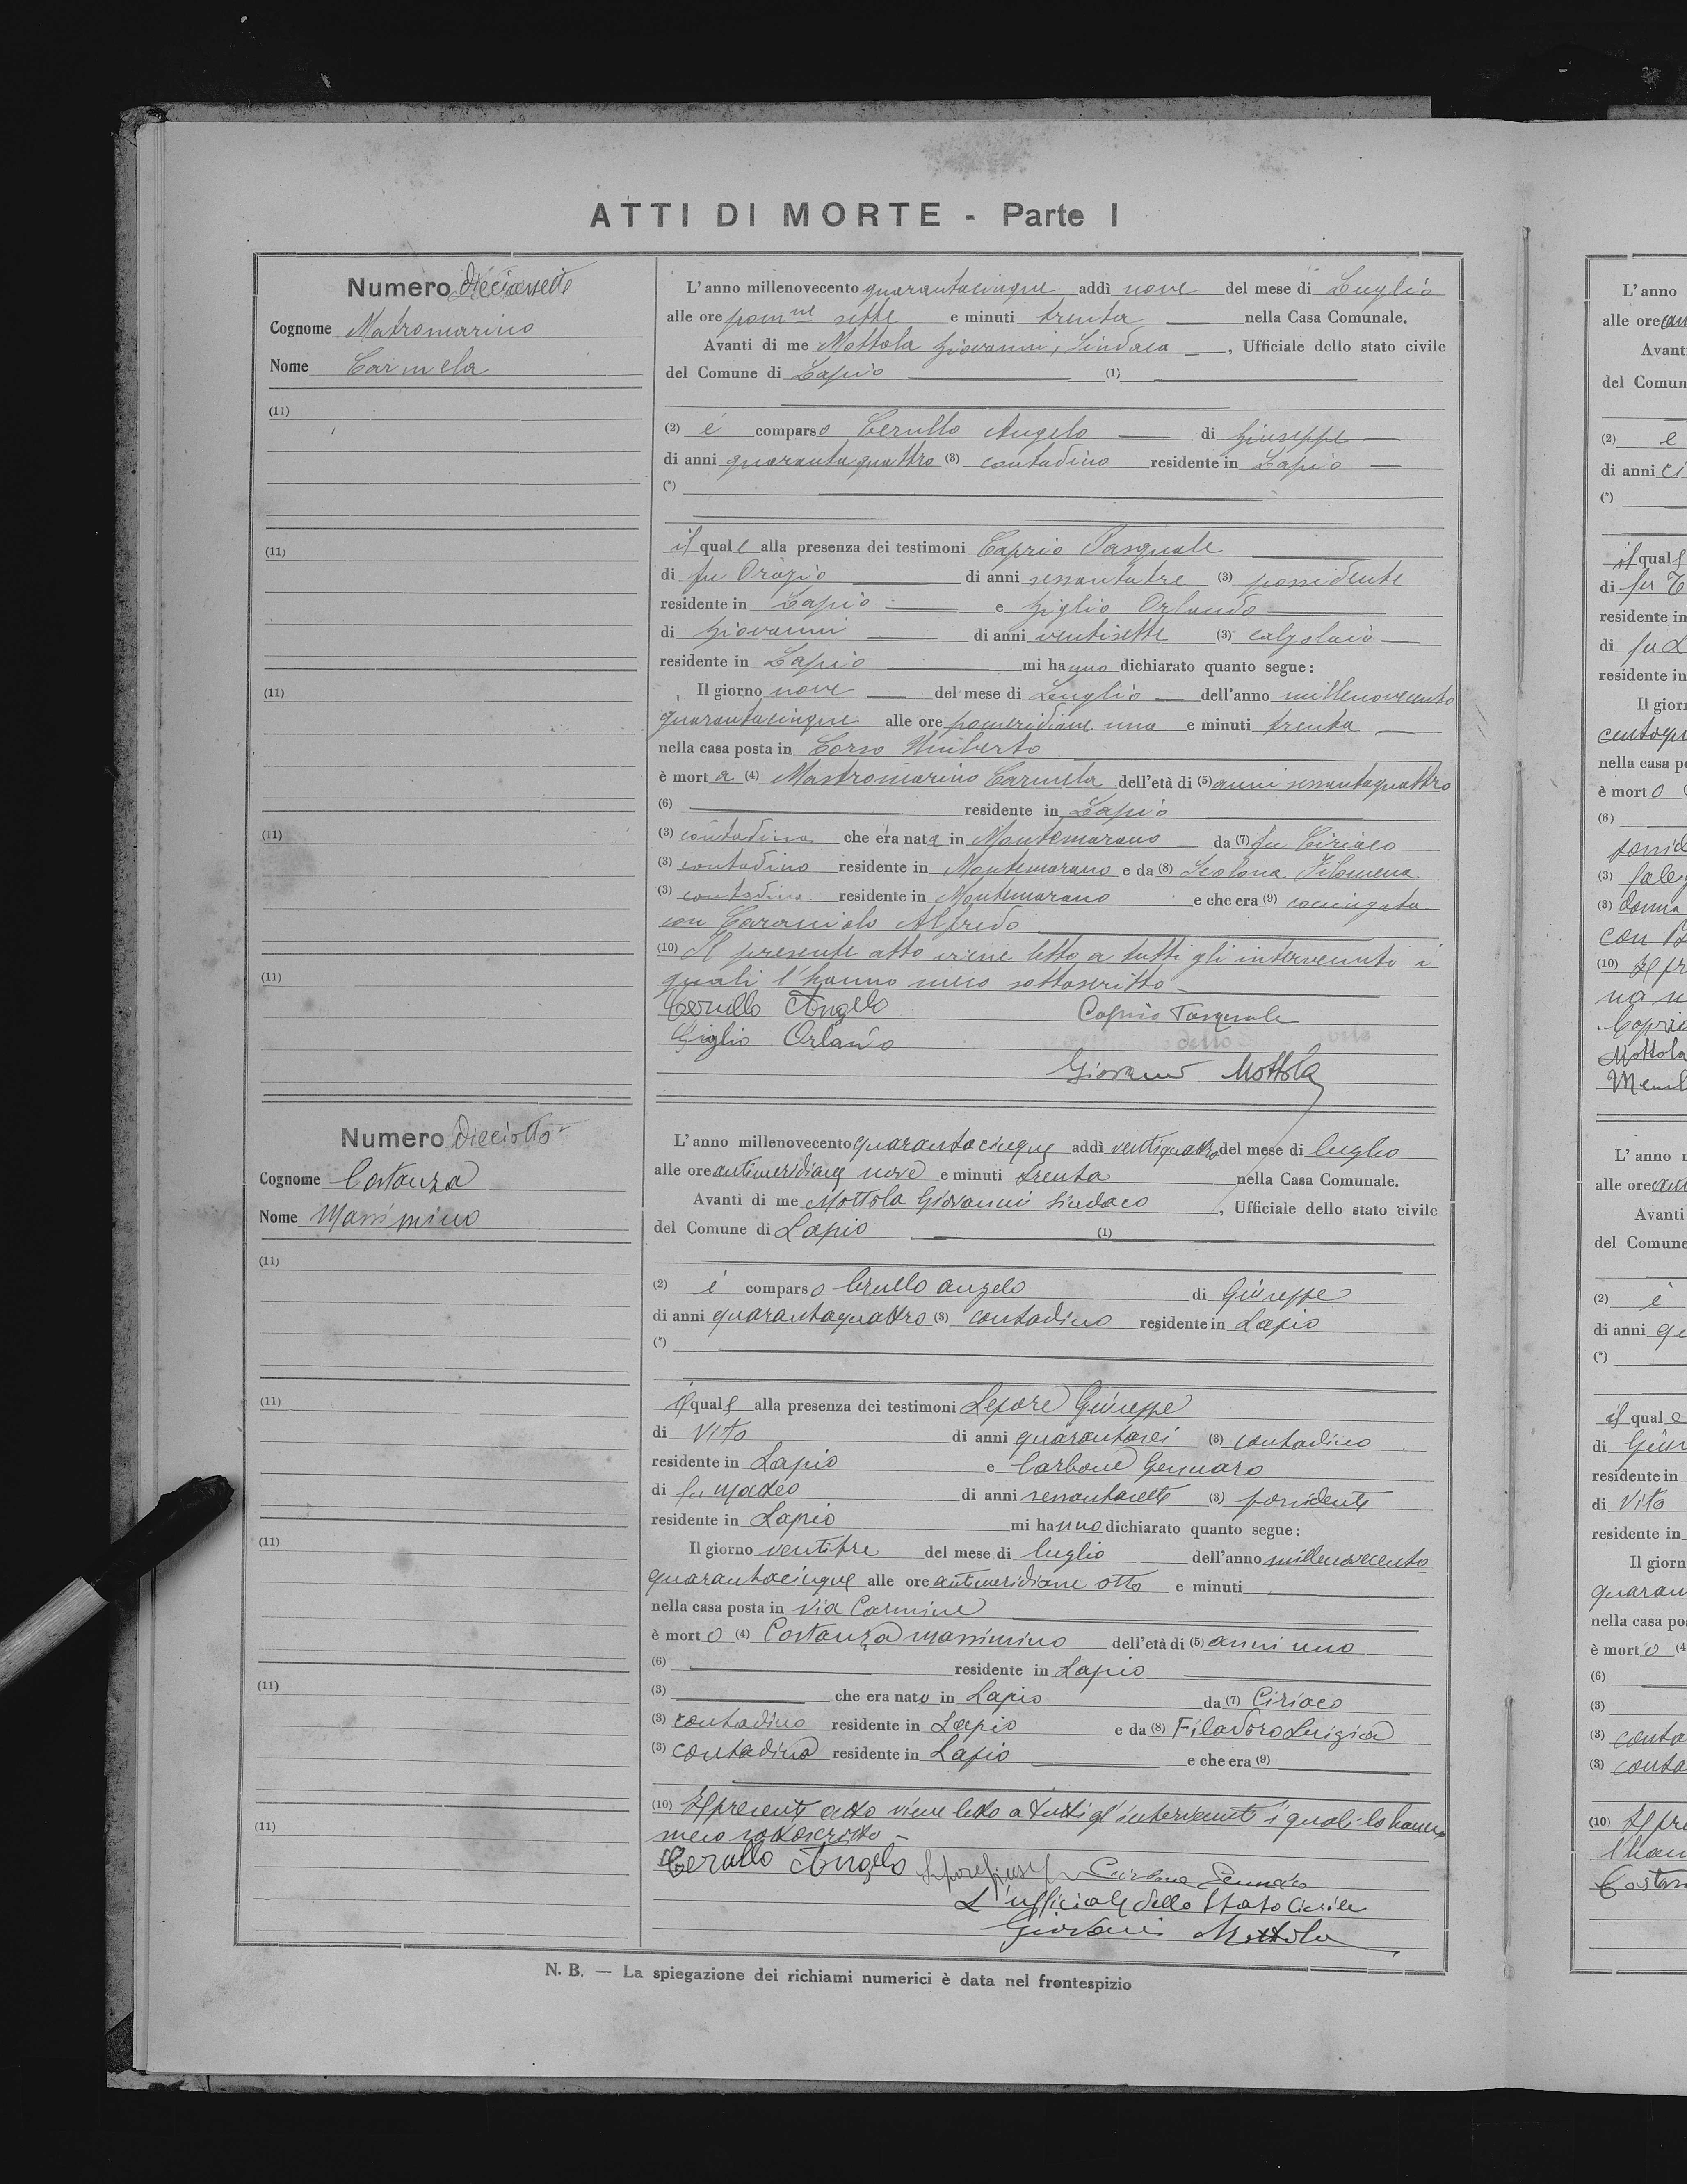 ATTI DI MORTE - Parte I
Numero diciassette
Cognome Matromarino
Nome Carmela
(11)
(11)
(11)
(11)
(11)
L'anno millenovecento quarantacinque addì nove del mese di Luglio
alle ore pom.ne sette e minuti trenta nella Casa Comunale.
Avanti di me Mottola Giovanni, Sindaco, Ufficiale dello stato civile
del Comune di Lapio (1)
(2) è comparso Cerullo Angelo di Giuseppe
di anni quarantaquattro (3) contadino residente in Lapio
(*)
il quale alla presenza dei testimoni Caprio Pasquale
di fu Orazio di anni sessantatre (3) possidente
residente in Lapio e Giglio Orlando
di Giovanni di anni ventisette (3) calzolaio
residente in Lapio mi hanno dichiarato quanto segue:
Il giorno nove del mese di Luglio dell'anno millenovecento
quarantacinque alle ore pomeridiane una e minuti trenta
nella casa posta in Corso Umberto
è morta (4) Mastromarino Carmela dell'età di (5) anni sessantaquattro
(6) residente in Lapio
(3) contadina che era nata in Montemarano da (7) fu Ciriaco
(3) contadino residente in Montemarano e da (8) Scolona Filomena
(3) contadina residente in Montemarano e che era (9) coniugata
con Alfredo
(10) Il presente atto viene letto a tutti gli intervenuti i
quali l'hanno meco sottoscritto
Cerullo Angelo Caprio Pasquale
Giglio Orlando
Giovanni Mottola
Numero dieciotto
Cognome Costanza
Nome Massimino
(11)
(11)
(11)
(11)
(11)
L'anno millenovecento quarantacinque addì ventiquattro del mese di luglio
alle ore antimeridiane nove e minuti trenta nella Casa Comunale.
Avanti di me Mottola Giovanni Sindaco, Ufficiale dello stato civile
del Comune di Lapio (1)
(2) è comparso Cerullo Angelo di Giuseppe
di anni quarantaquattro (3) contadino residente in Lapio
(*)
il quale alla presenza dei testimoni Lepore Giuseppe
di Vito di anni quarantasei (3) contadino
residente in Lapio e Carbone Gennaro
di fu di anni sessantasette (3) possidente
residente in Lapio mi hanno dichiarato quanto segue:
Il giorno ventitre del mese di luglio dell'anno millenovecento
quarantacinque alle ore antimeridiane otto e minuti
nella casa posta in Via Carmine
è morto (4) Costanza Massimino dell'età di (5) anni uno
(6) residente in Lapio
(3) che era nato in Lapio da (7) Ciriaco
(3) contadino residente in Lapio e da (8) Filadoro Luigia
(3) contadina residente in Lapio e che era (9)
(10) Il presente atto viene letto a tutti gl'intervenuti i quali lo hanno
meco sottoscritto
Cerullo Angelo Carbone Gennaro
L'ufficiale dello Stato Civile
Giovanni Mottola
N. B. — La spiegazione dei richiami numerici è data nel frontespizio